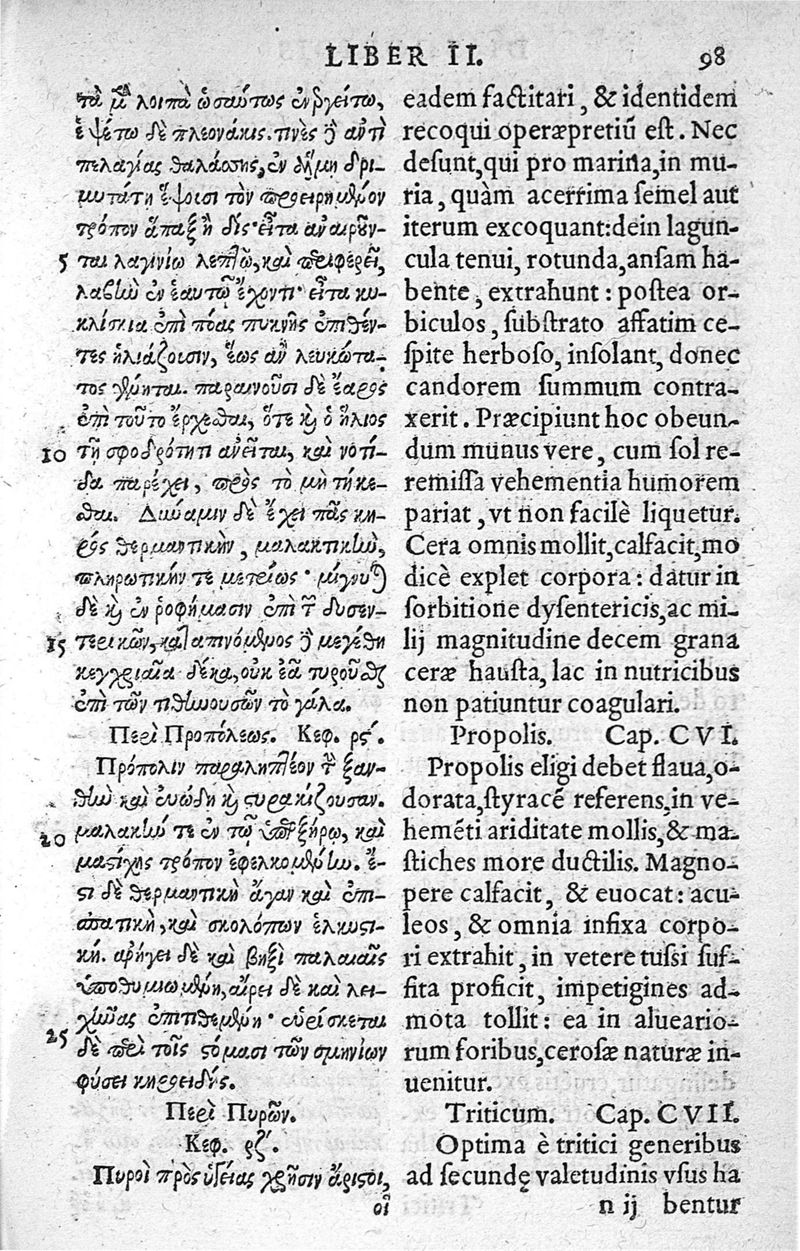 LIBER II. 98
τὰ μὲν λοιπὰ ὡσαύτως ἐνεργείτω,
ἑψέτω δὲ πλεονάκις. τινὲς ἢ ἀντὶ
πελαγίας θαλάσσης, ἐν ἅλμῃ δρι-
μυτάτῃ ἕψουσι τὸν προειρημένον
τρόπον ἅπαξ ἢ δίς· εἶτα ἀναιροῦν-
5 ται λαγηνίῳ λεπτῷ, καὶ περιφερεῖ,
λαβὴν ἐν ἑαυτῷ ἔχοντι· εἶτα κυ-
κλίσκια ἐπὶ πόας πυκνῆς ἐπιθέν-
τες ἡλιάζουσιν, ἕως ἂν λευκότα-
τος γένηται. παραινοῦσι δὲ ἔαρος
ἐπὶ τοῦτο ἔρχεσθαι, ὅτε καὶ ὁ ἥλιος
10 τῇ σφοδρότητι ἀνεῖται, καὶ νοτί-
δα παρέχει, πρὸς τὸ μὴ τήκε-
σθαι. Δύναμιν δὲ ἔχει πᾶς κη-
ρὸς θερμαντικὴν, μαλακτικὴν,
πληρωτικήν τε μετρίως· μίγνυται
δὲ καὶ ἐν ῥοφήμασιν ἐπὶ τῶν δυσεν-
15 τερικῶν, καταπινόμενος ἢ μεγέθη
κεγχριαῖα δέκα, οὐκ ἐᾷ τυροῦσθαι
ἐπὶ τῶν τιθηνουσῶν τὸ γάλα.
Περὶ Προπόλεως. Κεφ. ρϛ΄.
Πρόπολιν παραληπτέον τὴν ξαν-
θὴν καὶ εὐώδη καὶ στυρακίζουσαν.
20 μαλακήν τε ἐν τῷ ὑπερξήρῳ, καὶ
μαστίχης τρόπον ἐφελκομένην. ἔ-
στι δὲ θερμαντικὴ ἄγαν καὶ ἐπι-
σπατικὴ, καὶ σκολόπων ἑλκυστι-
κή. ἀρήγει δὲ καὶ βηξὶ παλαιαῖς
ὑποθυμιωμένη, αἴρει δὲ καὶ λει-
χῆνας ἐπιτιθεμένη· εὑρίσκεται
25 δὲ περὶ τοῖς στόμασι τῶν σμηνίων
φύσει κηροειδής.
Περὶ Πυρῶν.
Κεφ. ρζ΄.
Πυροὶ πρὸς ὑγείας χρῆσιν ἄριστοι,
οἱ
eadem factitari, & identidem
recoqui operæpretiũ eſt. Nec
deſunt, qui pro marina, in mu-
ria, quàm acerrima ſemel aut
iterum excoquant: dein lagun-
cula tenui, rotunda, anſam ha-
bente, extrahunt: poſtea or-
biculos, ſubſtrato affatim ce-
ſpite herboſo, inſolant, donec
candorem ſummum contra-
xerit. Præcipiunt hoc obeun-
dum munus vere, cum ſol re-
remiſſa vehementia humorem
pariat, vt non facilè liquetur.
Cera omnis mollit, calfacit, mo
dicè explet corpora: datur in
ſorbitione dyſentericis, ac mi-
lij magnitudine decem grana
ceræ hauſta, lac in nutricibus
non patiuntur coagulari.
Propolis. Cap. CVI.
Propolis eligi debet flaua, o-
dorata, ſtyracẽ referens, in ve-
hemẽti ariditate mollis, & ma-
ſtiches more ductilis. Magno-
pere calfacit, & euocat: acu-
leos, & omnia infixa corpo-
ri extrahit, in vetere tuſsi ſuf-
fita proficit, impetigines ad-
mota tollit: ea in alueario-
rum foribus, ceroſæ naturæ in-
uenitur.
Triticum. Cap. CVII.
Optima è tritici generibus
ad ſecundę valetudinis vſus ha
n ij bentur